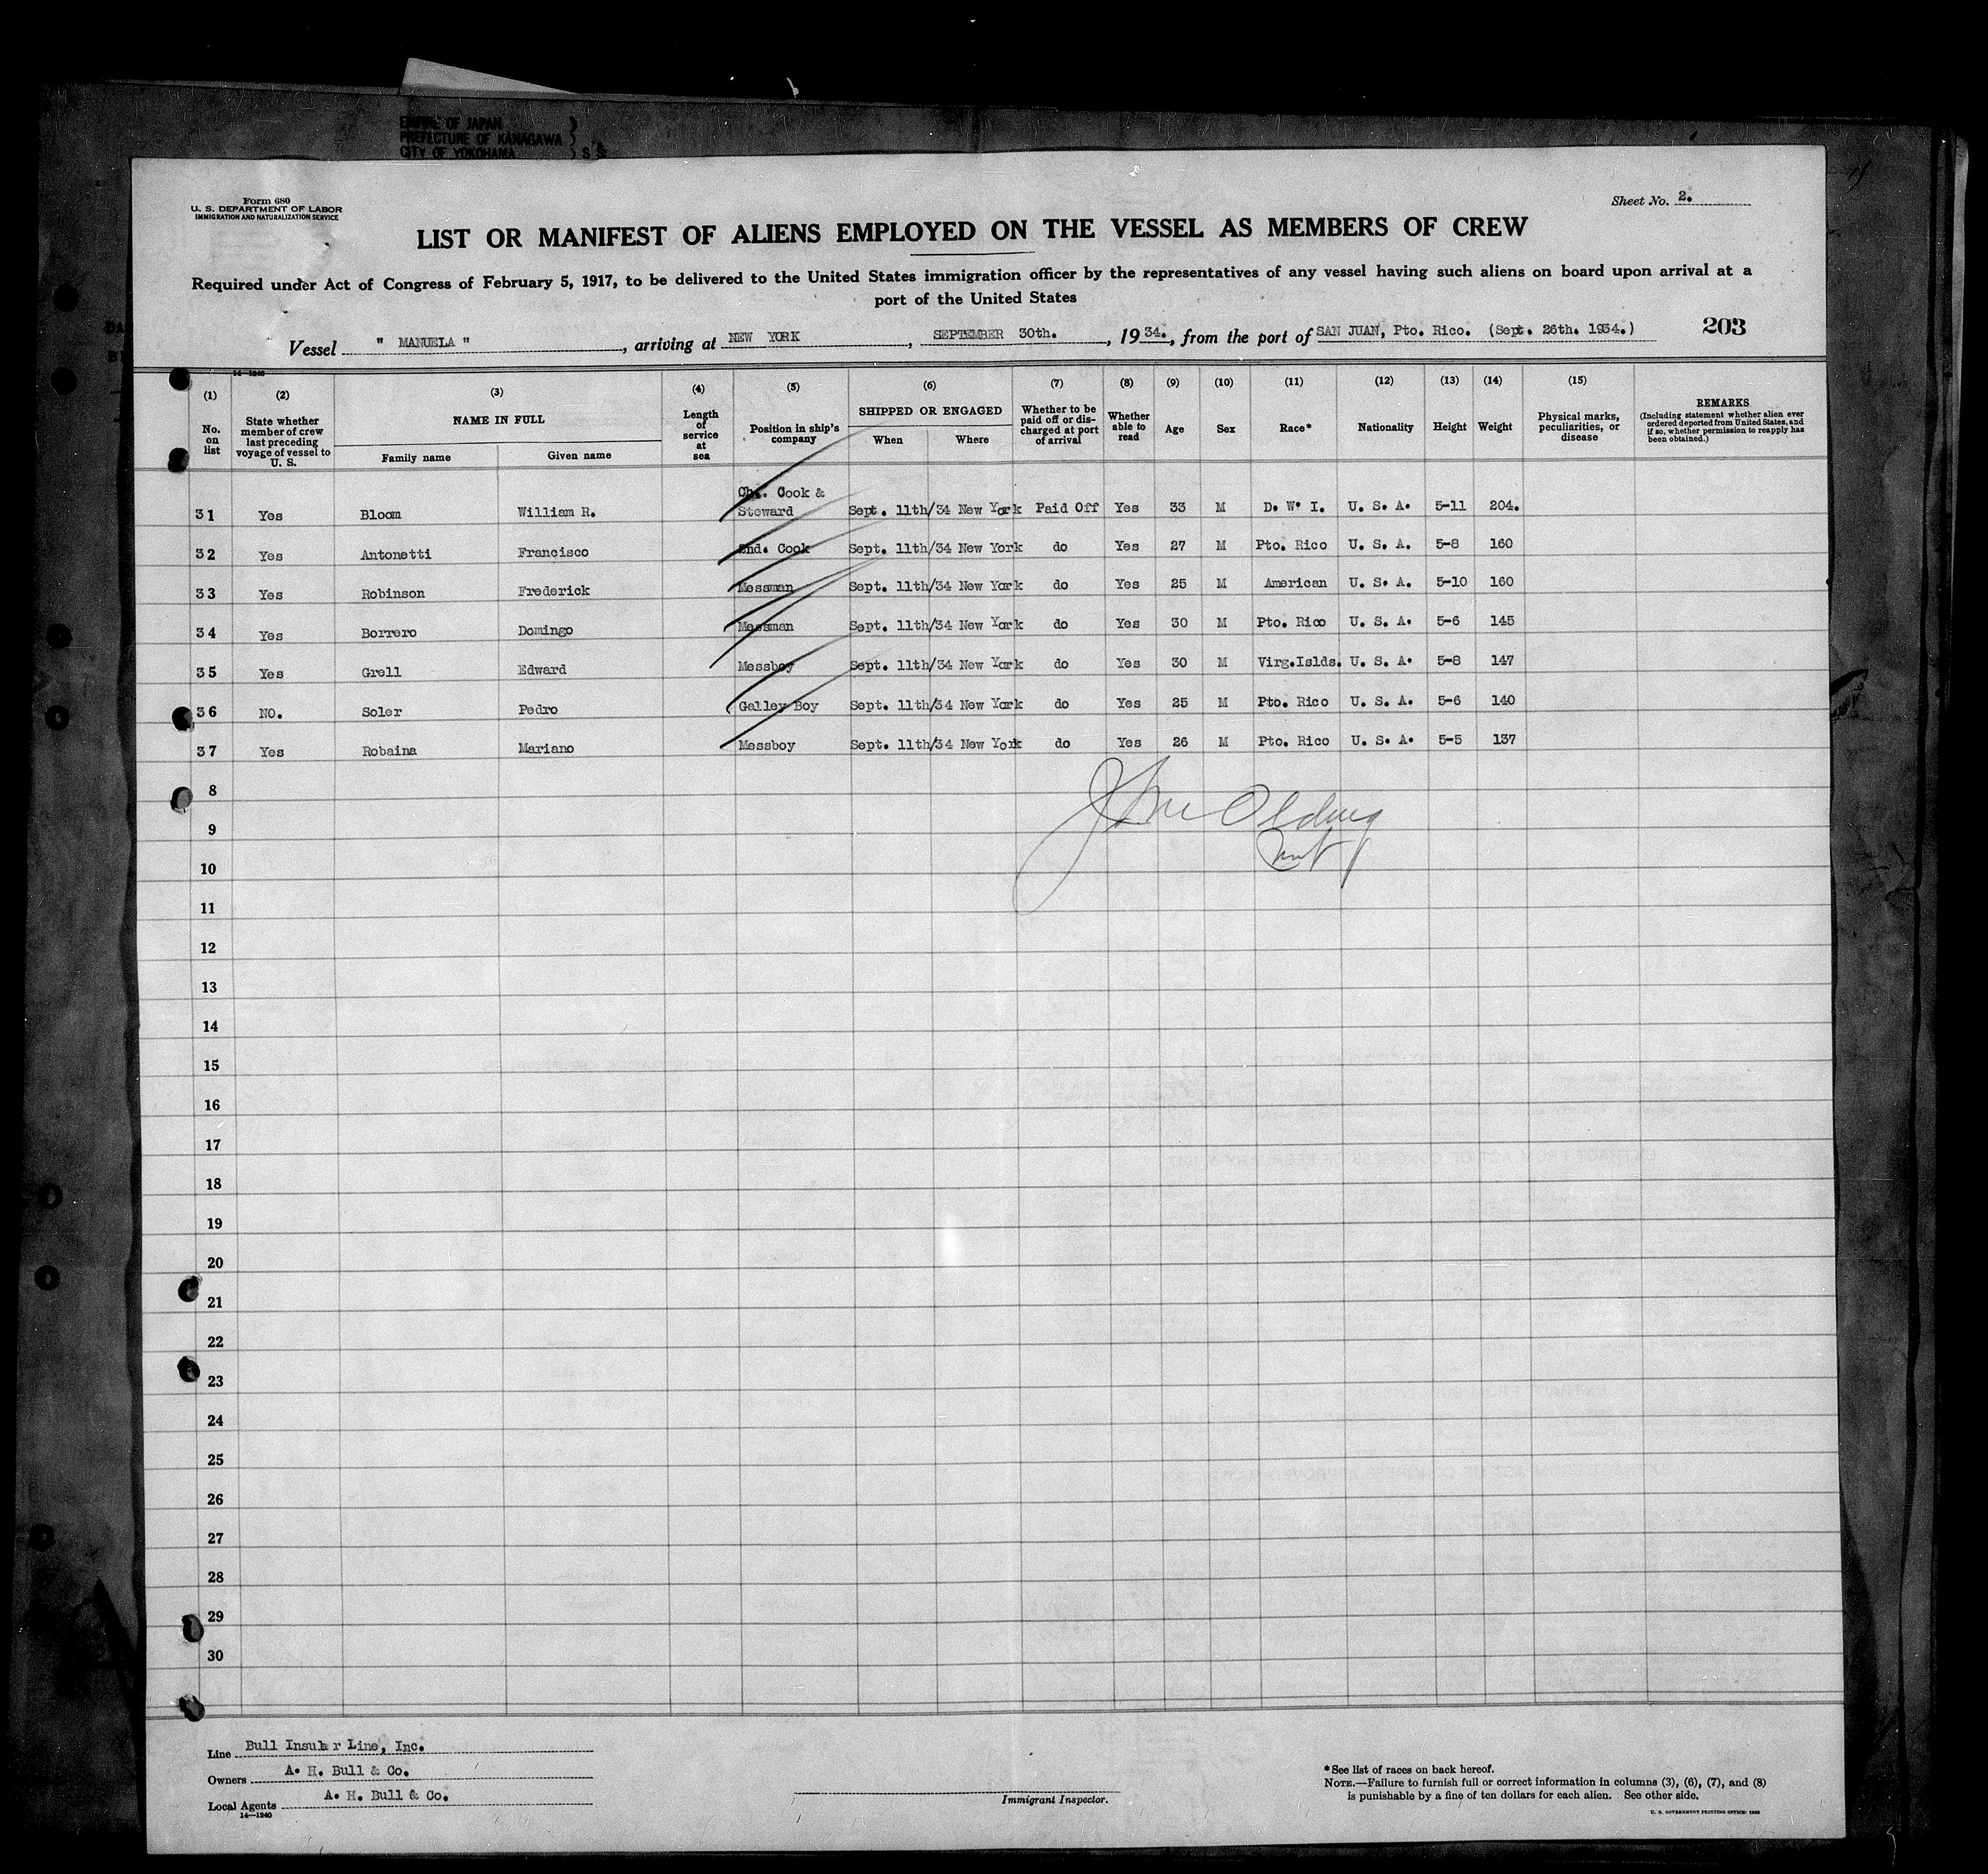 EMPIRE OF JAPAN )
PREFECTURE OF KANAGAWA )
CITY OF YOKOHAMA ) S S
Form 680
U. S. DEPARTMENT OF LABOR
IMMIGRATION AND NATURALIZATION SERVICE
Sheet No. 2.
LIST OR MANIFEST OF ALIENS EMPLOYED ON THE VESSEL AS MEMBERS OF CREW
Required under Act of Congress of February 5, 1917, to be delivered to the United States immigration officer by the representatives of any vessel having such aliens on board upon arrival at a
port of the United States
Vessel " MANUELA ", arriving at NEW YORK, SEPTEMBER 30th., 1934., from the port of SAN JUAN, Pto. Rico. (Sept. 26th. 1934.) 203
14-1240
(1) (2) (3) (4) (5) (6) (7) (8) (9) (10) (11) (12) (13) (14) (15)
No. on list
State whether member of crew last preceding voyage of vessel to U. S.
NAME IN FULL
Family name Given name
Length of service at sea
Position in ship's company
SHIPPED OR ENGAGED
When Where
Whether to be paid off or discharged at port of arrival
Whether able to read
Age
Sex
Race*
Nationality
Height
Weight
Physical marks, peculiarities, or disease
REMARKS
(Including statement whether alien ever ordered deported from United States, and if so, whether permission to reapply has been obtained.)
31 Yes Bloom William R. Ch. Cook & Steward Sept. 11th/34 New York Paid Off Yes 33 M D. W. I. U. S. A. 5-11 204.
32 Yes Antonetti Francisco 2nd. Cook Sept. 11th/34 New York do Yes 27 M Pto. Rico U. S. A. 5-8 160
33 Yes Robinson Frederick Messman Sept. 11th/34 New York do Yes 25 M American U. S. A. 5-10 160
34 Yes Borrero Domingo Messman Sept. 11th/34 New York do Yes 30 M Pto. Rico U. S. A. 5-6 145
35 Yes Grell Edward Messboy Sept. 11th/34 New York do Yes 30 M Virg.Islds. U. S. A. 5-8 147
36 NO. Soler Pedro Galley Boy Sept. 11th/34 New York do Yes 25 M Pto. Rico U. S. A. 5-6 140
37 Yes Robaina Mariano Messboy Sept. 11th/34 New York do Yes 26 M Pto. Rico U. S. A. 5-5 137
8
9
10
11
12
13
14
15
16
17
18
19
20
21
22
23
24
25
26
27
28
29
30
Line Bull Insular Line, Inc.
Owners A. H. Bull & Co.
Local Agents A. H. Bull & Co.
14-1240
Immigrant Inspector.
*See list of races on back hereof.
NOTE.—Failure to furnish full or correct information in columns (3), (6), (7), and (8)
is punishable by a fine of ten dollars for each alien. See other side.
U. S. GOVERNMENT PRINTING OFFICE: